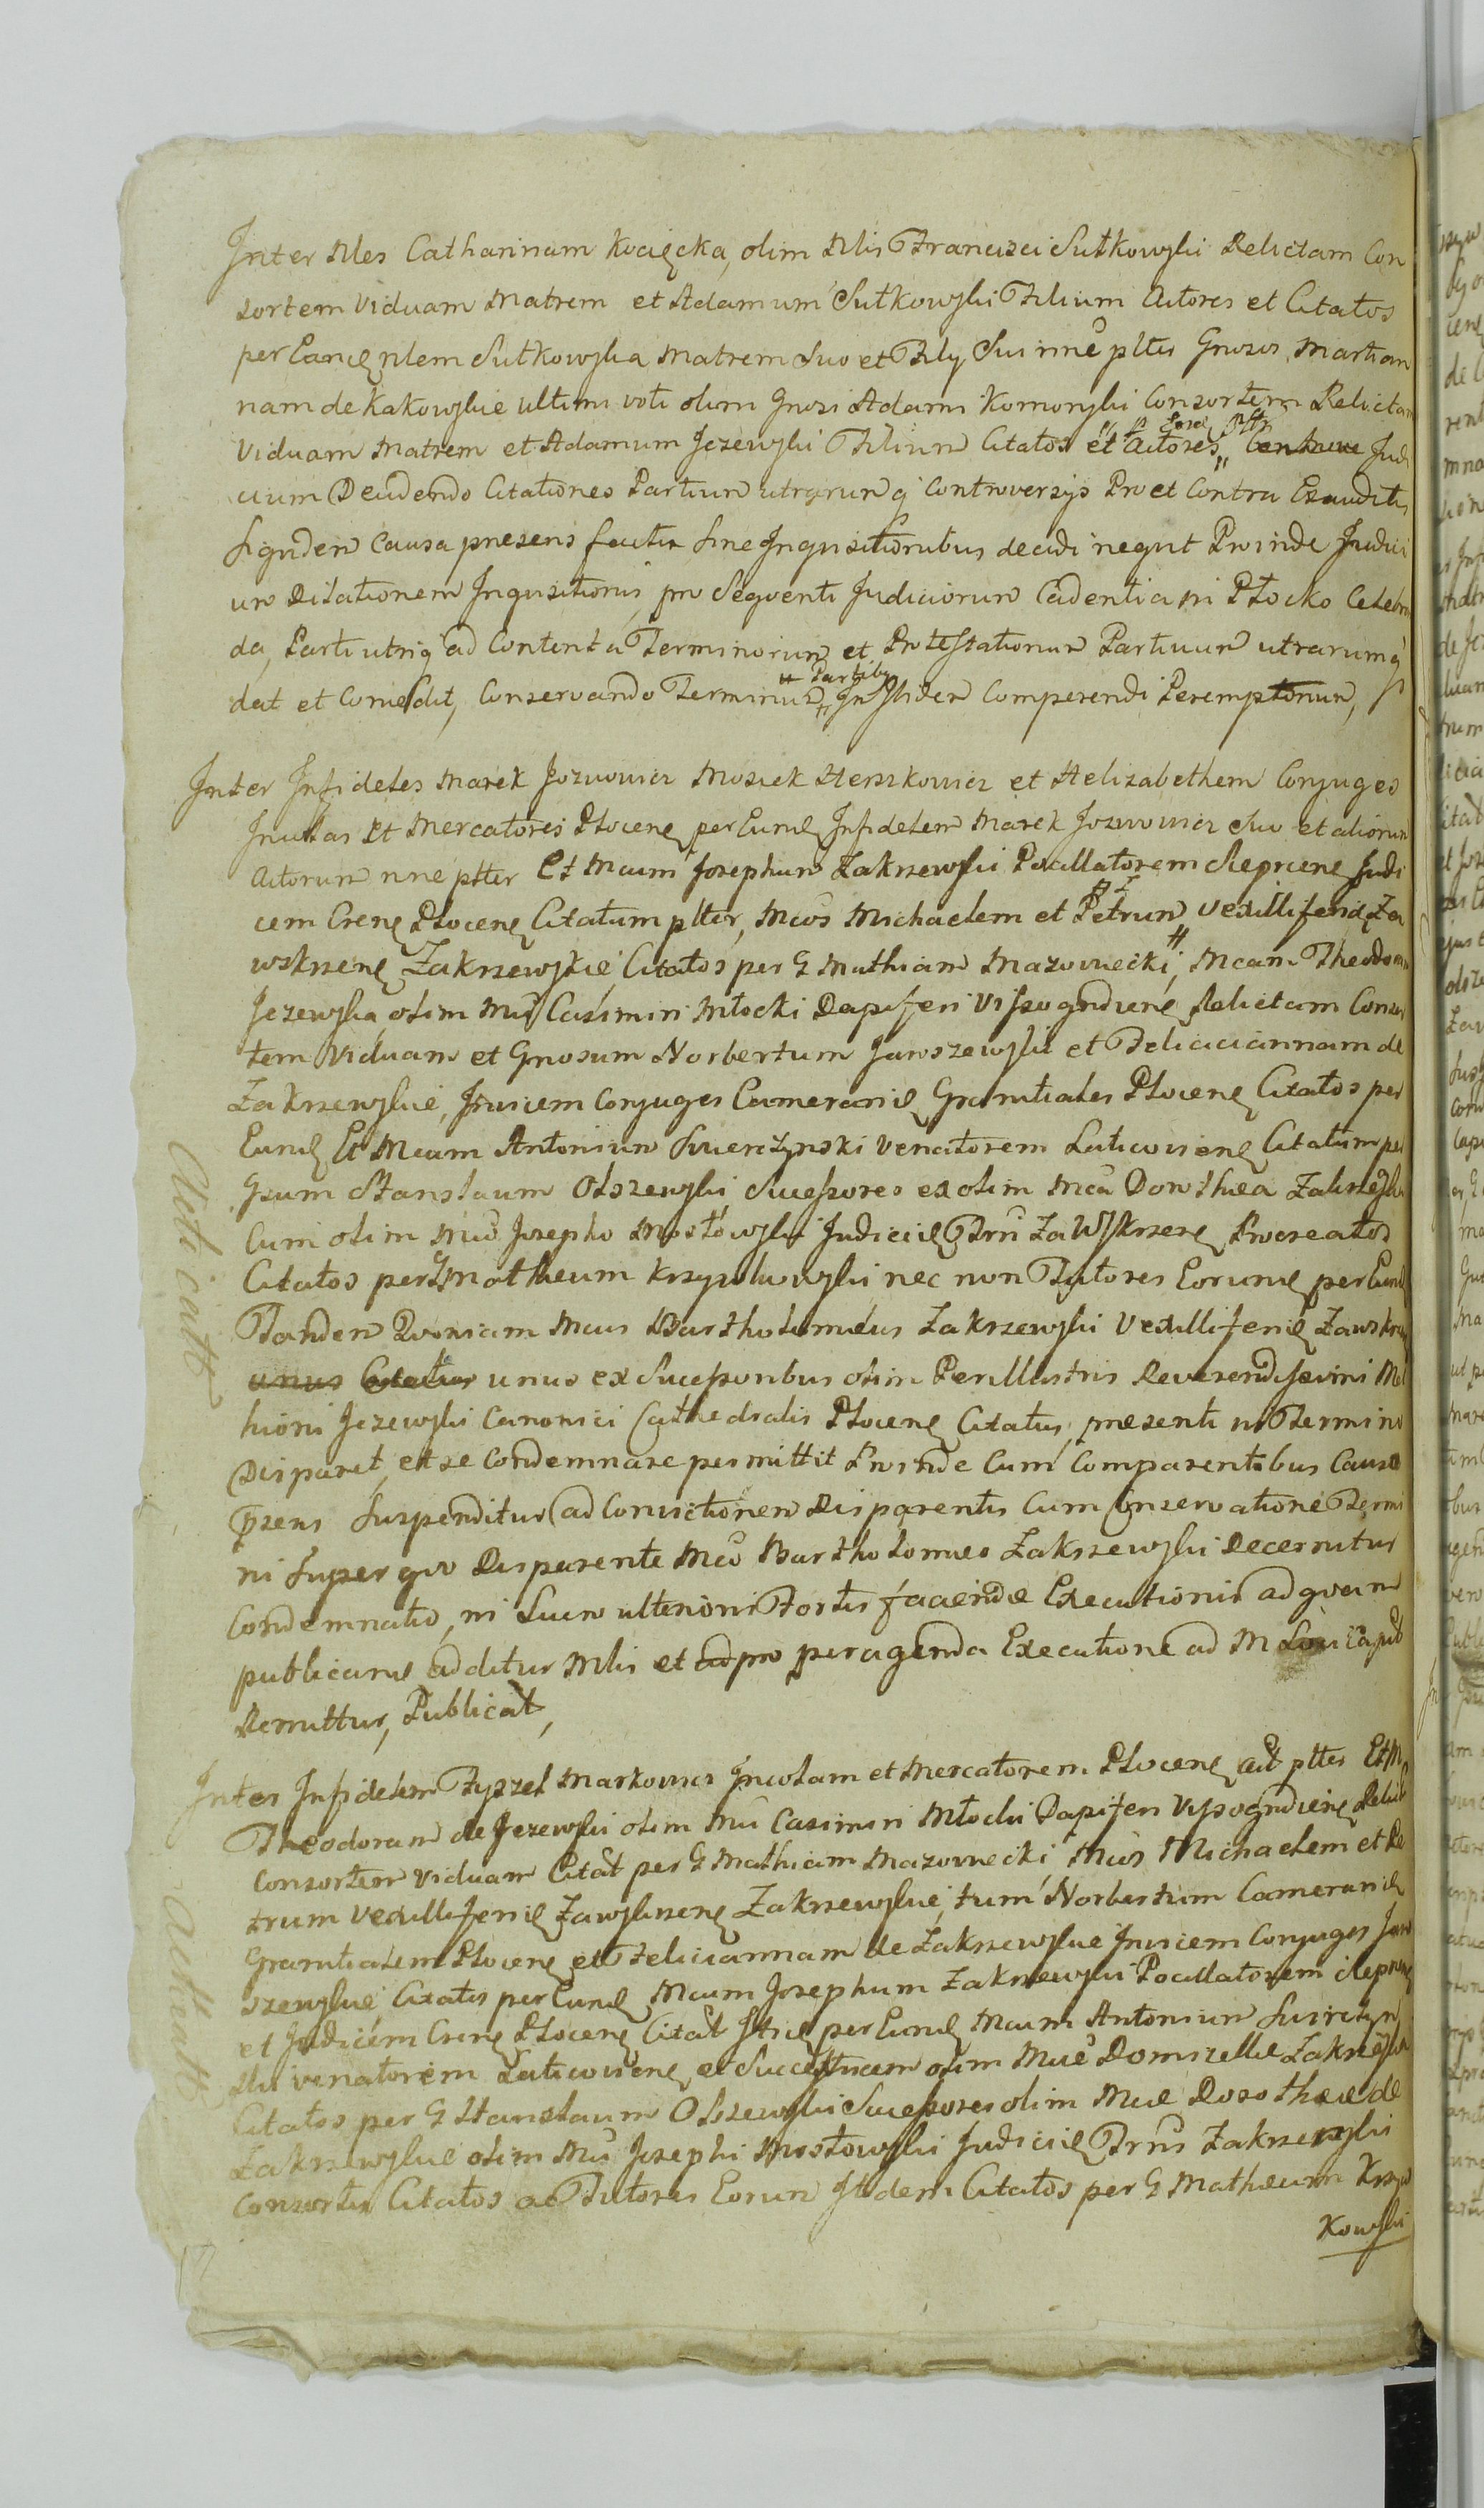 Inter Nles Catharinam Kocięcka, olim Nlis Francisci Sutkowski Relictam Con
sortem Viduam Matrem et Adamum Sutkowski Filium Actores et Citatos
per Eandę nlem Sutkowska Matrem Suo et Filÿ Sui nne pltes Gnosos Marian
nam de Kakowskie ultimi voti olim Gnosi Adami Komonski Consortem Relictam
Viduam Matrem et Adamum Jezewski Filium Citatos et Actores Judi
cium Decidendo Citationes Partium utrarunq Controversÿs Pro et Contra Exauditis
Siquidem Causa presens Sine Inquisitionibus decidi nequit Proinde Judici
um Dilationem Inquisitionis pro Seqventi Judiciorum Cadentia in Płocko Celebran
da, Parti utriq ad Contenta Terminorum et Protestationum Partium utrarumq
dat et Concedit, Conservando Terminum Partibus Ibidem Comparendi Peremptorium,
Inter Infideles Marek Jozwowicz Mosiek Herszkowicz et Helizabethem Conjuges
Incolas et Mercatores Płocenę per Eundę Infidelem Marek Jozwowicz Suo et aliorum
Actorum nne plter Et Mcum Josephum Zakrzewski Pocillatorem Sieprcenę Judi
cem Crenę Płocenę Citatum plter, Mcos Michaelem et Petrum Vexilliferidę Za
wskrzenę Zakrzewskie, Citatos per G Mathiam Mazowiecki, Mcam Theodoram
Jezewska, olim Mci Casimiri Młocki Dapiferi Visogrodienę Relictam Consor
tem Viduam et Gnosum Norbertum Jaroszewski et Feliciannam de
Zakrzewskie, Invicem Conjuges Cameranidę Granitiales Płocenę Citatos per
Eundę Et Mcum Antonium Swierczynski Venatorem Laticovienę Citatum per
Gsum Stanslaum Olszewski Sucessores ex olim Mca Dorothea Zakrzewska
Cum olim Mco Josepho Mostowski Judicidę Trri Zawskrzenę Procreatos
Citatos per G Matheum Krzyzkowski nec non Tutores Eorundę per Eundę
Tanden Qvoniam Mcus Bartholomeus Zakrzewski Vexilliferidę Zawskrzenę
unus ex Sucessoribus olim Perillustris Reverendissimi Mel
hioni Jezewski Canonici Cathedralis Płocenę Citatus, presenti in Termino
Disparet, et se Condemnare permittit Proinde Cum Comparentibus Causa
psens Suspenditur ad Convictionem Disparentis Cum Conservatione Termi
ni Super qvo Disparente Mco Bartholomeo Zakrzewski Decernitur
Condemnatio, in Lucro ulterioris Fortis faciendę Executionis ad qvam
publicandę additur Mlis et pro peragenda Executione ad M Loci Caput
Remittitur, Publicat,
Inter Infidelem Fyszel Markowicz Incolam et Mercatorem Płocenę act pltes Et M
Theodoram de Jezewski olim Mci Casimiri Młocki Dapiferi Vyssogrodienę Relictam
Consortem Viduam Citat per G Mathiam Mazowiecki Mcos Michaelem et Pe
trum Vexilliferidę Zawskrzenę Zakrzewskie, tum Norbertum Cameranidę
Granitialem Płocenę et Feliciannam de Zakrzewskie Invicem Conjuges Jaro
szewskie Citatos per Eundę Mcum Josephum Zakrzewski Pocillatorem Sieprcenę
et Judicem Crenę Płocenę Citat per Eundę Mcum Antonium Swierczyn
ski Venatorem Laticovienę, et Succestricem olim Mcę Domicellę Zakrzewska
Citatos per G Stanslaum Olszewski Sucessores olim Mcę Dorotheę de
Zakrzewskie olim Mci Josephi Mostowski Judicidę Trris Zakrzewski
Consortis Citatos ac Tutores Eorum Itidem Citatos per G Matheum Krzyz
Kowski